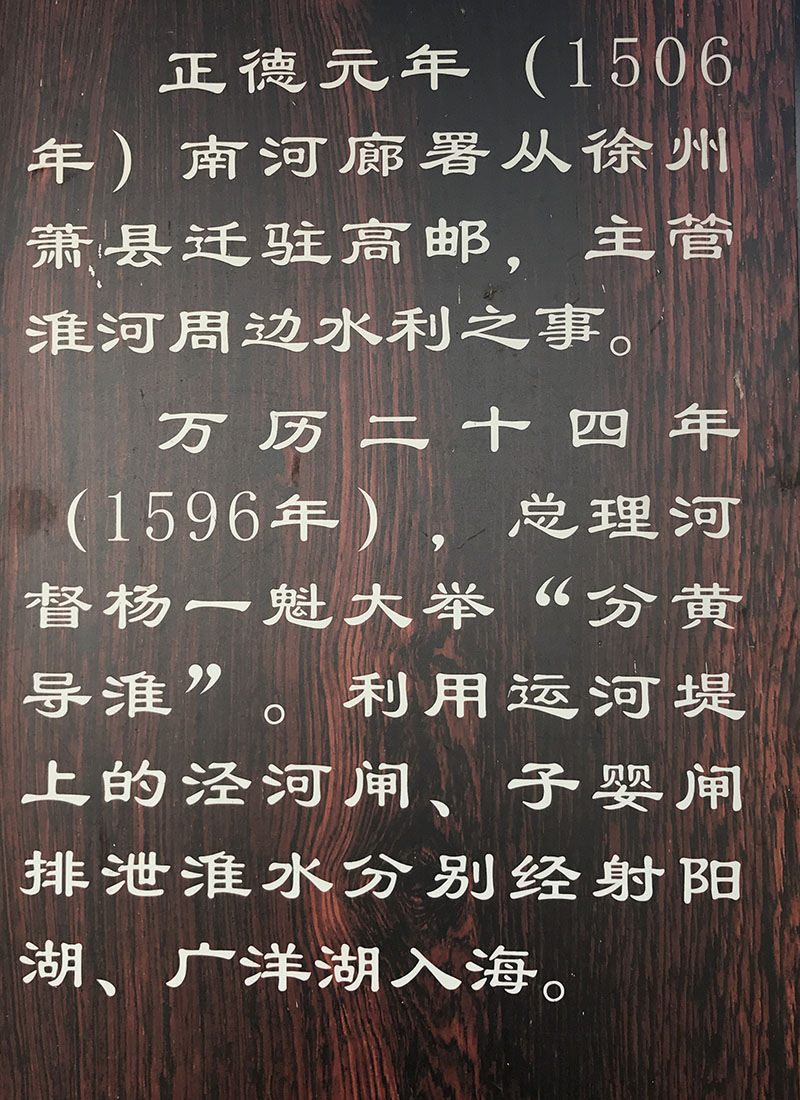 正德元年（1506
年）南河廊署从徐州
萧县迁驻高邮，主管
淮河周边水利之事。
万历二十四年
（1596年），总理河
督杨一魁大举“分黄
导淮”。利用运河堤
上的泾河闸、子婴闸
排泄淮水分别经射阳
湖、广洋湖入海。